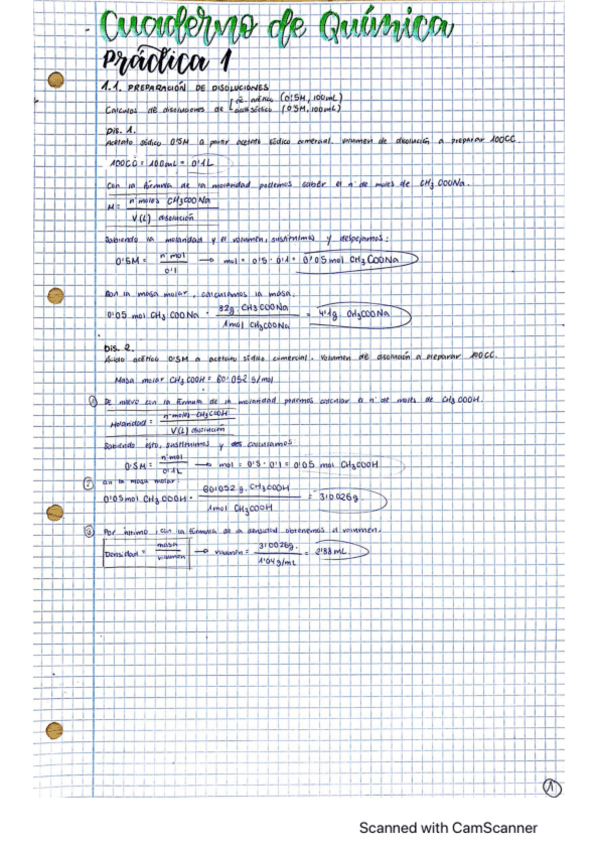 Cuaderno de Química
Práctica 1
1.1. PREPARACIÓN DE DISOLUCIONES
Cálculos de disoluciones de ác. acético (0'5M, 100mL)
acet. sódico (0'5M, 100mL)
Dis. 1.
Acetato sódico 0'5M a partir acetato sódico comercial. Volumen de disolución a preparar 100CC.
100CC = 100mL = 0'1L
Con la fórmula de la molaridad podemos saber el nº de moles de CH3COONa.
M = nº moles CH3COONa / V(L) disolución
Sabiendo la molaridad y el volumen, sustituimos y despejamos:
0'5M = nº mol / 0'1 → mol = 0'5 · 0'1 = 0'05 mol CH3COONa
Con la masa molar, calculamos la masa:
0'05 mol CH3COONa · 82g CH3COONa / 1mol CH3COONa = 4'1g CH3COONa
Dis. 2.
Ácido acético 0'5M a acetato sódico comercial. Volumen de disolución a preparar 100CC.
Masa molar CH3COOH = 60'052 g/mol
1 De nuevo con la fórmula de la molaridad podemos calcular el nº de moles de CH3COOH.
Molaridad = nº moles CH3COOH / V(L) disolución
Sabiendo esto, sustituimos y calculamos
0'5M = nº mol / 0'1L → mol = 0'5 · 0'1 = 0'05 mol CH3COOH
2 con la masa molar:
0'05mol CH3COOH · 60'052 g. CH3COOH / 1mol CH3COOH = 3'0026g
3 Por último, con la fórmula de la densidad obtenemos el volumen.
Densidad = masa / volumen → volumen = 3'0026g. / 1'04g/mL = 2'88mL
1
Scanned with CamScanner